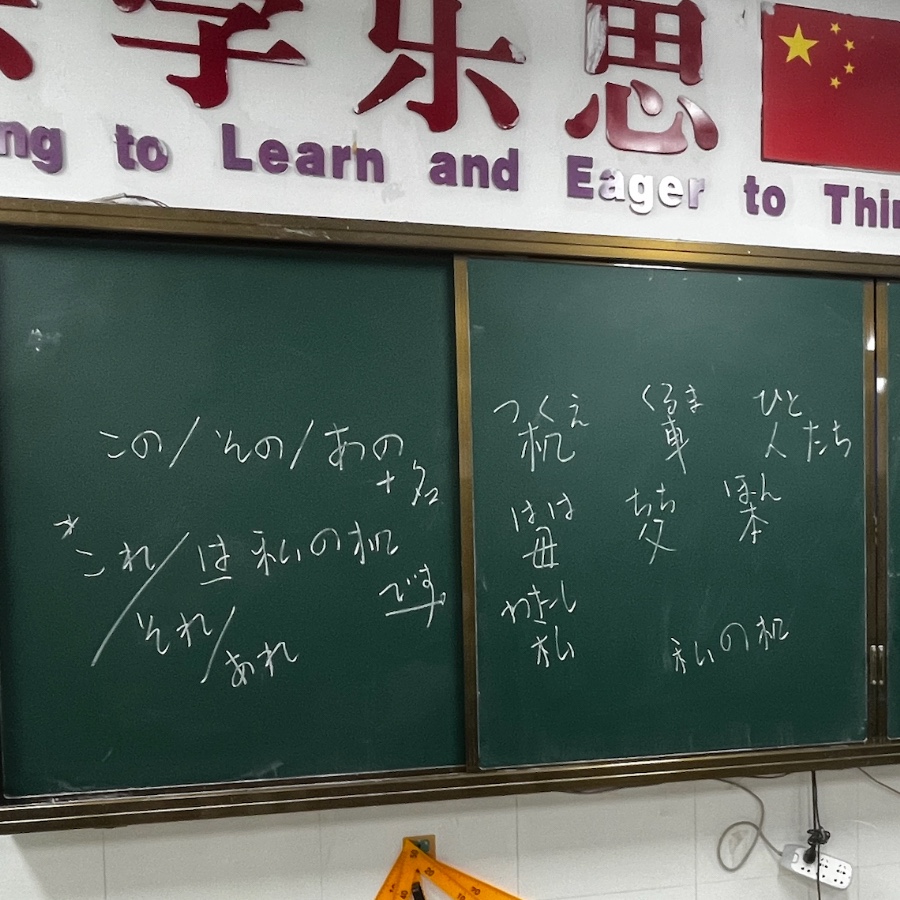 学乐思
ng to Learn and Eager to Thin
この/その/あの
+名
*これ/は私の机
です
それ/
あれ
つくえ くるま ひと
机 車 人たち
はは ちち ほん
母 父 本
わたし
私 私の机